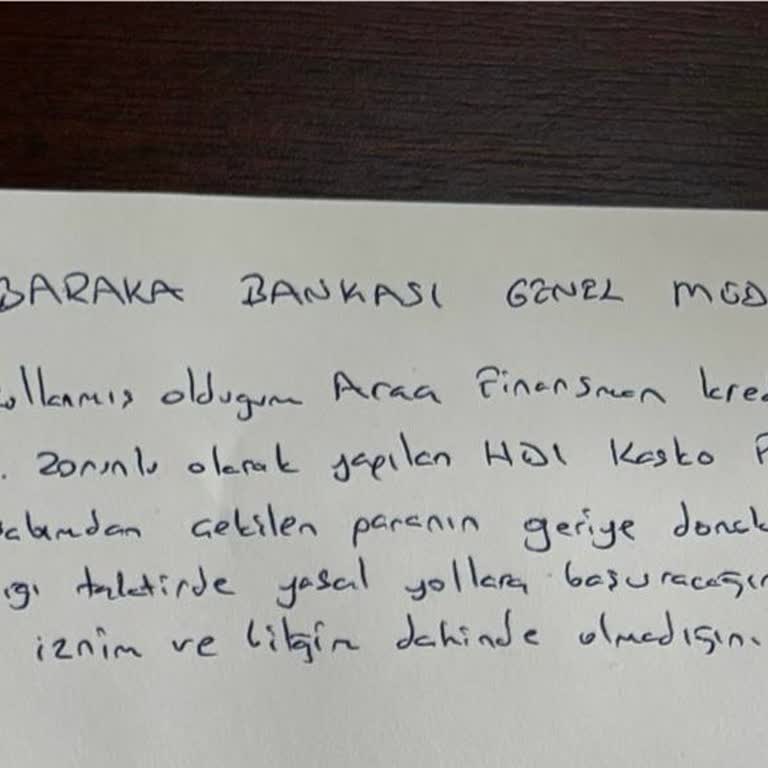 BARAKA BANKASI GENEL MÜD
kullanmış olduğum Araç Finansman kred
. Zorunlu olarak yapılan HDI Kasko P
çekilen paranın geriye dönük
ığı takdirde yasal yollara başuracağım
iznim ve bilgim dahinde olmadığını